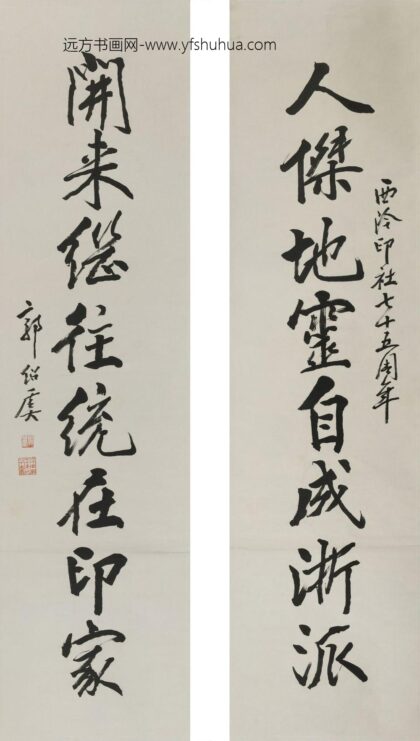 远方书画网-www.yfshuhua.com
西泠印社七十五周年
人傑地靈自成浙派
開来繼往統在印家
郭绍虞